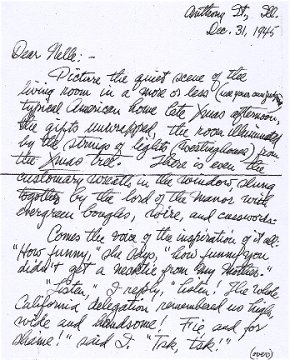 Anthony St, Ill.
Dec. 31, 1945
Dear Nelle: -
Picture the quiet scene of the
living room in a more or less (use your own judgment)
typical American home late Xmas afternoon,
the gifts unwrapped, the room illuminated
by the strings of lights (Westinghouse) from
the Xmas tree. There is even the
customary wreath in the window, slung
together by the lord of the manor with
evergreen boughs, wire, and cusswords.
Comes the voice of the inspiration of it all:
"How funny," she says, "how funny you
didn't get a necktie from my mother."
"Listen", I reply, "listen! The whole
California delegation remembered us high,
wide and handsome! Fie, and for
shame!" said I. "Tsk, tsk!"
(over)